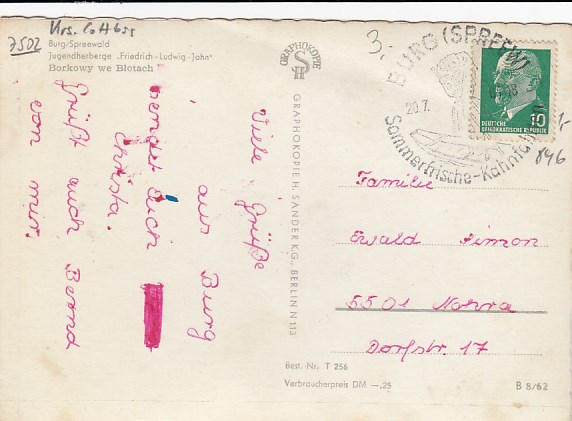 Krs. Cottbus
7502
Burg/Spreewald
Jugendherberge „Friedrich-Ludwig-Jahn"
Borkowy we Błotach
Viele Grüße
aus Burg
sendet Euch
Christa.
Grüßt auch Bernd
von mir.
GRAPHOKOPIE
GRAPHOKOPIE H. SANDER K.G., BERLIN N 113
3,-
BURG (SPREEW)
20.7.
Sommerfrische-Kahnfa
10
DEUTSCHE
DEMOKRATISCHE REPUBLIK
846
Familie
Ewald Simon
5501 Nohra
Dorfstr. 17
Best.-Nr. T 256
Verbraucherpreis DM —,25
B 8/62